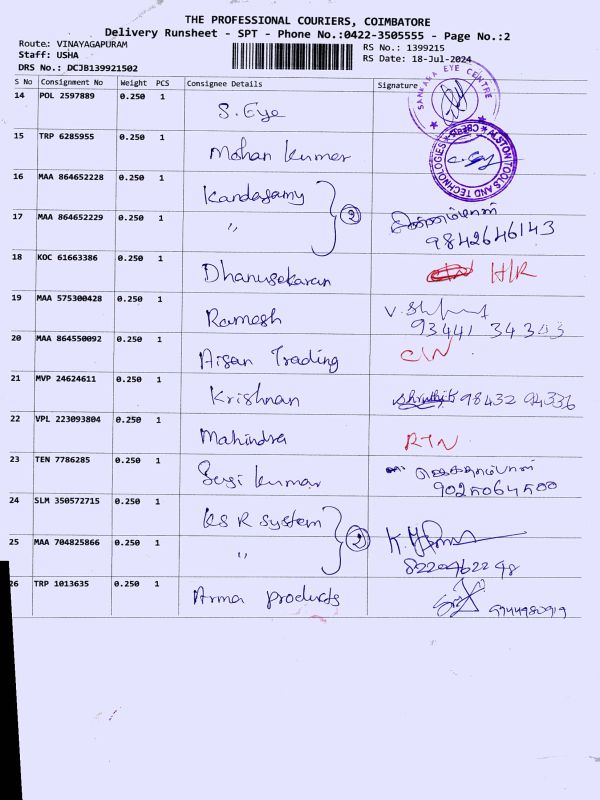 THE PROFESSIONAL COURIERS, COIMBATORE
Delivery Runsheet - SPT - Phone No.:0422-3505555 - Page No.:2
Route: VINAYAGAPURAM
RS No.: 1399215
Staff: USHA
RS Date: 18-Jul-2024
DRS No.: DCJB139921502
S No Consignment No Weight PCS Consignee Details Signature
SANKARA EYE CENTRE
14 POL 2597889 0.250 1 S. Eye
ALSTON TOOLS AND TECHNOLOGIES
15 TRP 6285955 0.250 1 Mohan Kumar
16 MAA 864652228 0.250 1 Kandasamy
2
17 MAA 864652229 0.250 1 〃 9842646143
18 KOC 61663386 0.250 1 Dhanusekaran H/R
19 MAA 575300428 0.250 1 Ramesh
93441 34343
20 MAA 864550092 0.250 1 Aisan Trading C/N
21 MVP 24624611 0.250 1 Krishnan 98432 94336
22 VPL 223093804 0.250 1 Mahindra RTN
23 TEN 7786285 0.250 1 Kumar
9025064500
24 SLM 350572715 0.250 1 KSR System
2
25 MAA 704825866 0.250 1 〃
26 TRP 1013635 0.250 1 Arma products